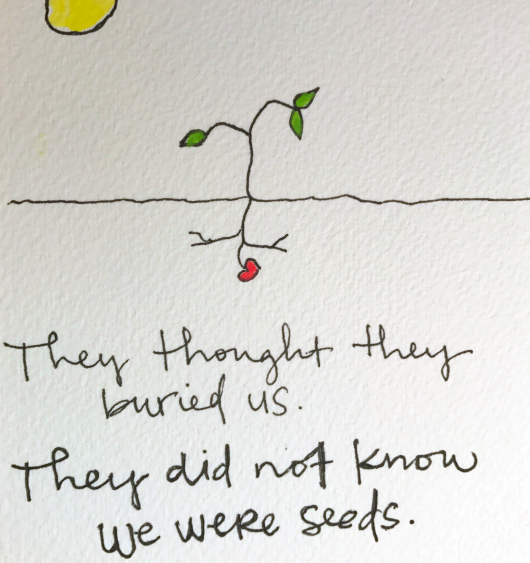 They thought they
buried us.
They did not know
we were seeds.